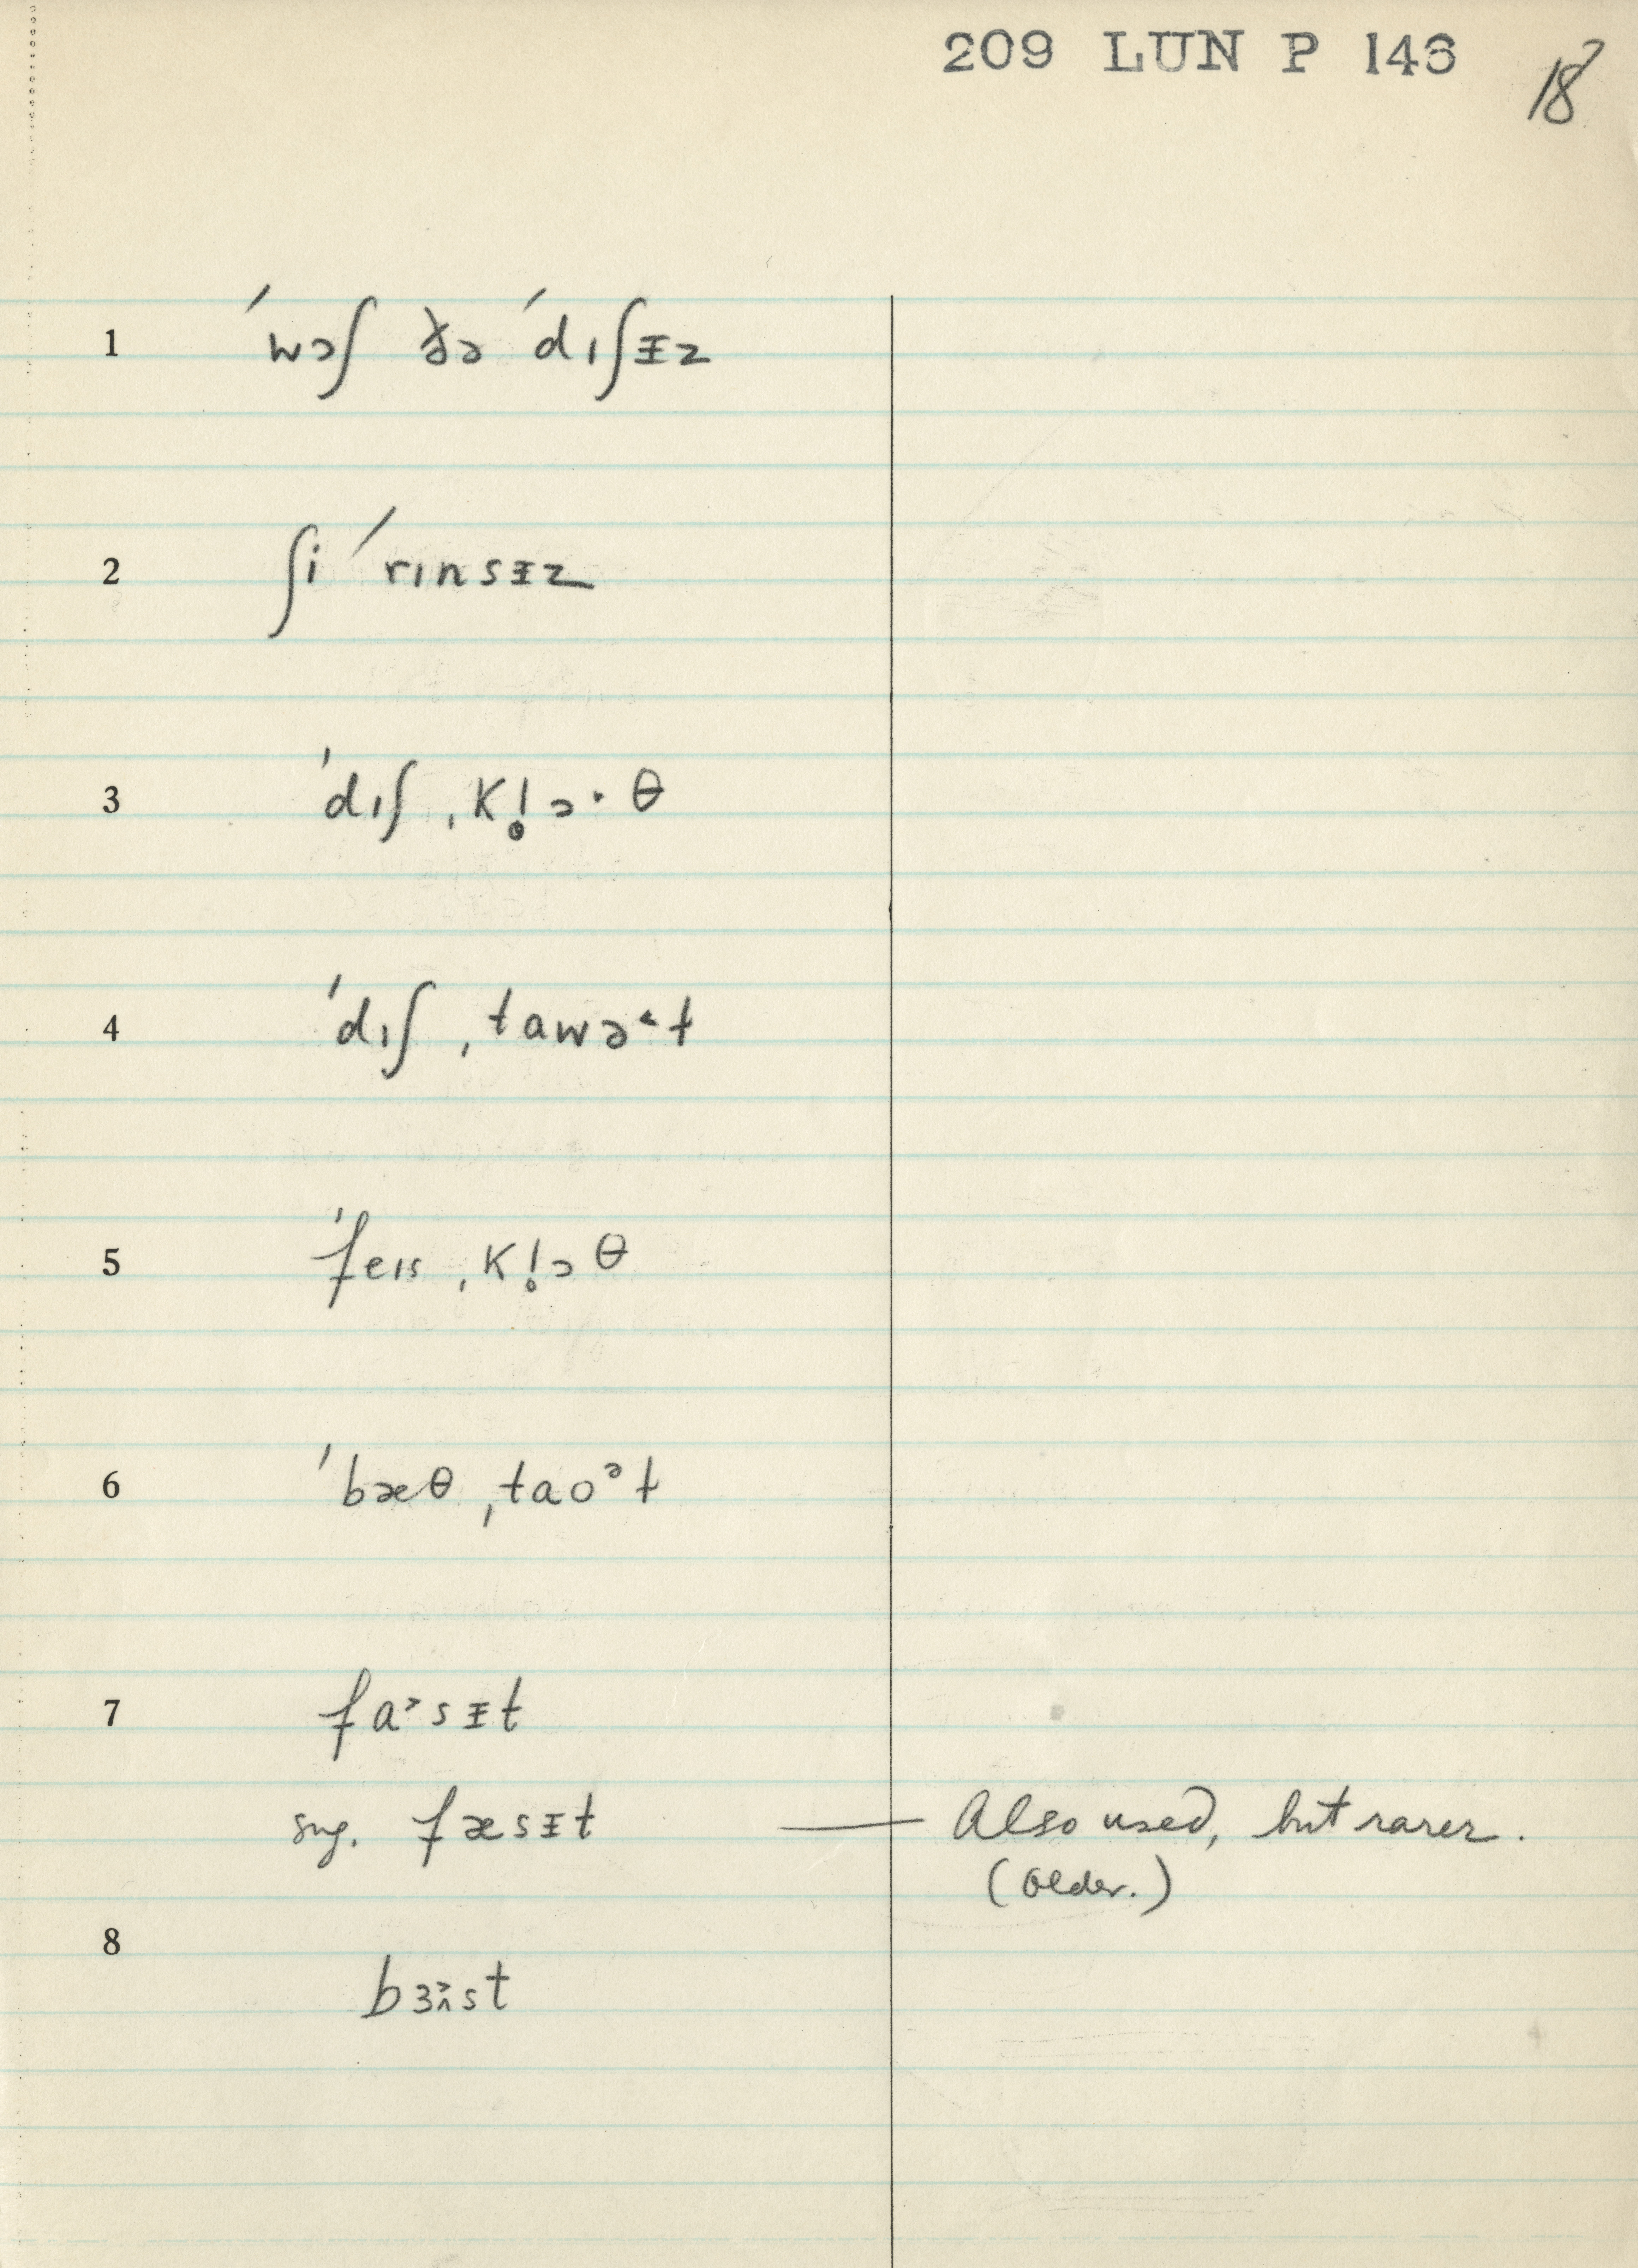 209 LUN P 146
18
1 ˈwɔʃ ðə ˈdɪʃᵻz
2 ʃi ˈrɪnsᵻz
3 ˈdɪʃ ˌkl̥ɔ·θ
4 ˈdɪʃ ˌtawə˂t
5 ˈfeɪs ˌkl̥ɔθ
6 ˈbæθ ˌtaoᵊt
7 fa˃sᵻt
sug. fæsᵻt — Also used, but rarer.
(older.)
8 bɜ˃st